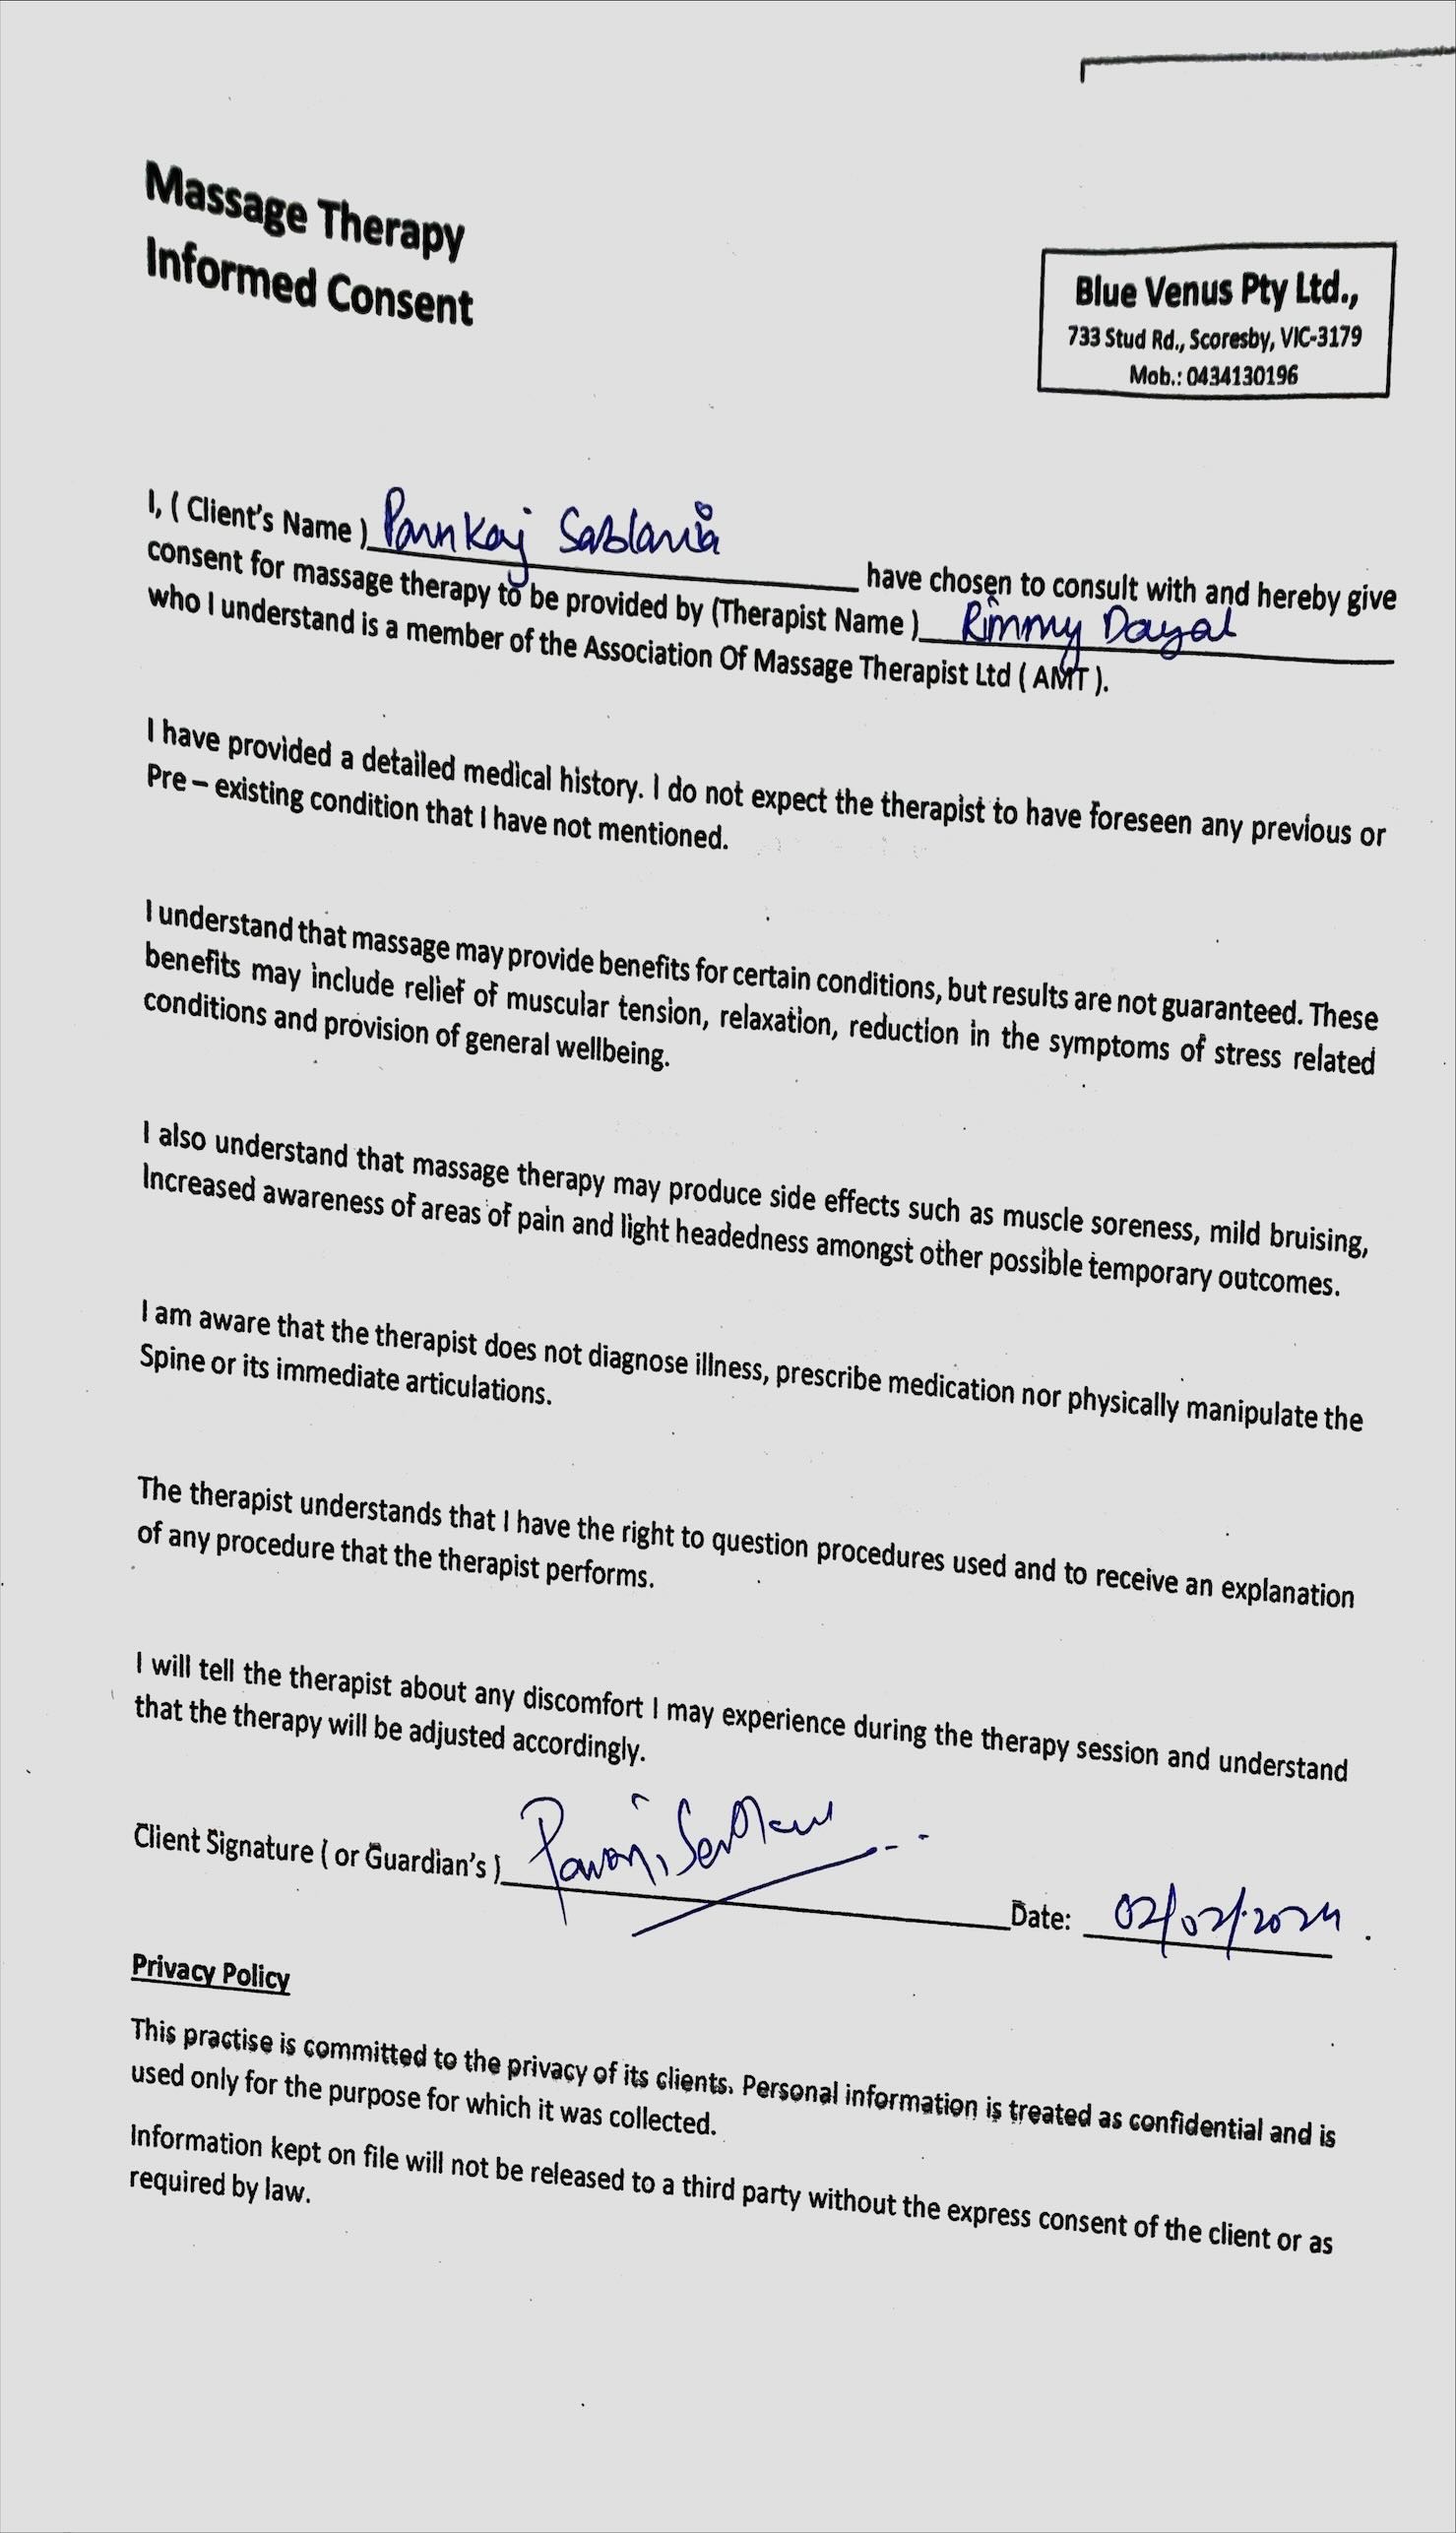 Massage Therapy
Informed Consent
Blue Venus Pty Ltd.,
733 Stud Rd., Scoresby, VIC-3179
Mob.: 0434130196
I, ( Client's Name ) Pannkaj Sablania have chosen to consult with and hereby give
consent for massage therapy to be provided by (Therapist Name ) Rimmy Dayal
who I understand is a member of the Association Of Massage Therapist Ltd ( AMT ).
I have provided a detailed medical history. I do not expect the therapist to have foreseen any previous or
Pre – existing condition that I have not mentioned.
I understand that massage may provide benefits for certain conditions, but results are not guaranteed. These
benefits may include relief of muscular tension, relaxation, reduction in the symptoms of stress related
conditions and provision of general wellbeing.
I also understand that massage therapy may produce side effects such as muscle soreness, mild bruising,
Increased awareness of areas of pain and light headedness amongst other possible temporary outcomes.
I am aware that the therapist does not diagnose illness, prescribe medication nor physically manipulate the
Spine or its immediate articulations.
The therapist understands that I have the right to question procedures used and to receive an explanation
of any procedure that the therapist performs.
I will tell the therapist about any discomfort I may experience during the therapy session and understand
that the therapy will be adjusted accordingly.
Client Signature ( or Guardian's ) Date: 02/02/2024
Privacy Policy
This practise is committed to the privacy of its clients. Personal information is treated as confidential and is
used only for the purpose for which it was collected.
Information kept on file will not be released to a third party without the express consent of the client or as
required by law.